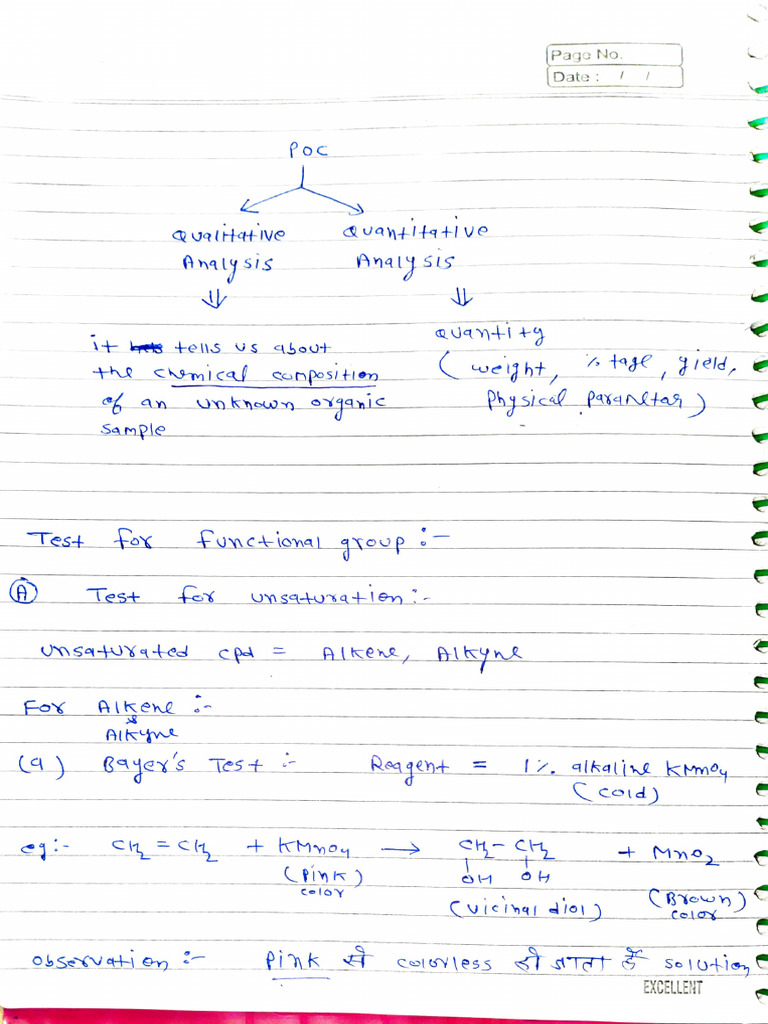 Page No.
Date : / /
POC
Qualitative Quantitative
Analysis Analysis
⇓ ⇓
it tells us about
the chemical composition
of an unknown organic
sample
Quantity
( weight, % tage, yield,
Physical Parametar )
Test for functional group :-
(A) Test for unsaturation :-
unsaturated cpd = Alkene, Alkyne
For Alkene :-
&
Alkyne
(a) Bayer's Test :- Reagent = 1 % alkaline KMnO4
(cold)
eg :- CH2 = CH2 + KMnO4 → CH2 - CH2 + MnO2
(Pink) OH OH (Brown)
color (vicinal diol) color
observation :- Pink से colorless हो जाता हैं solution
EXCELLENT